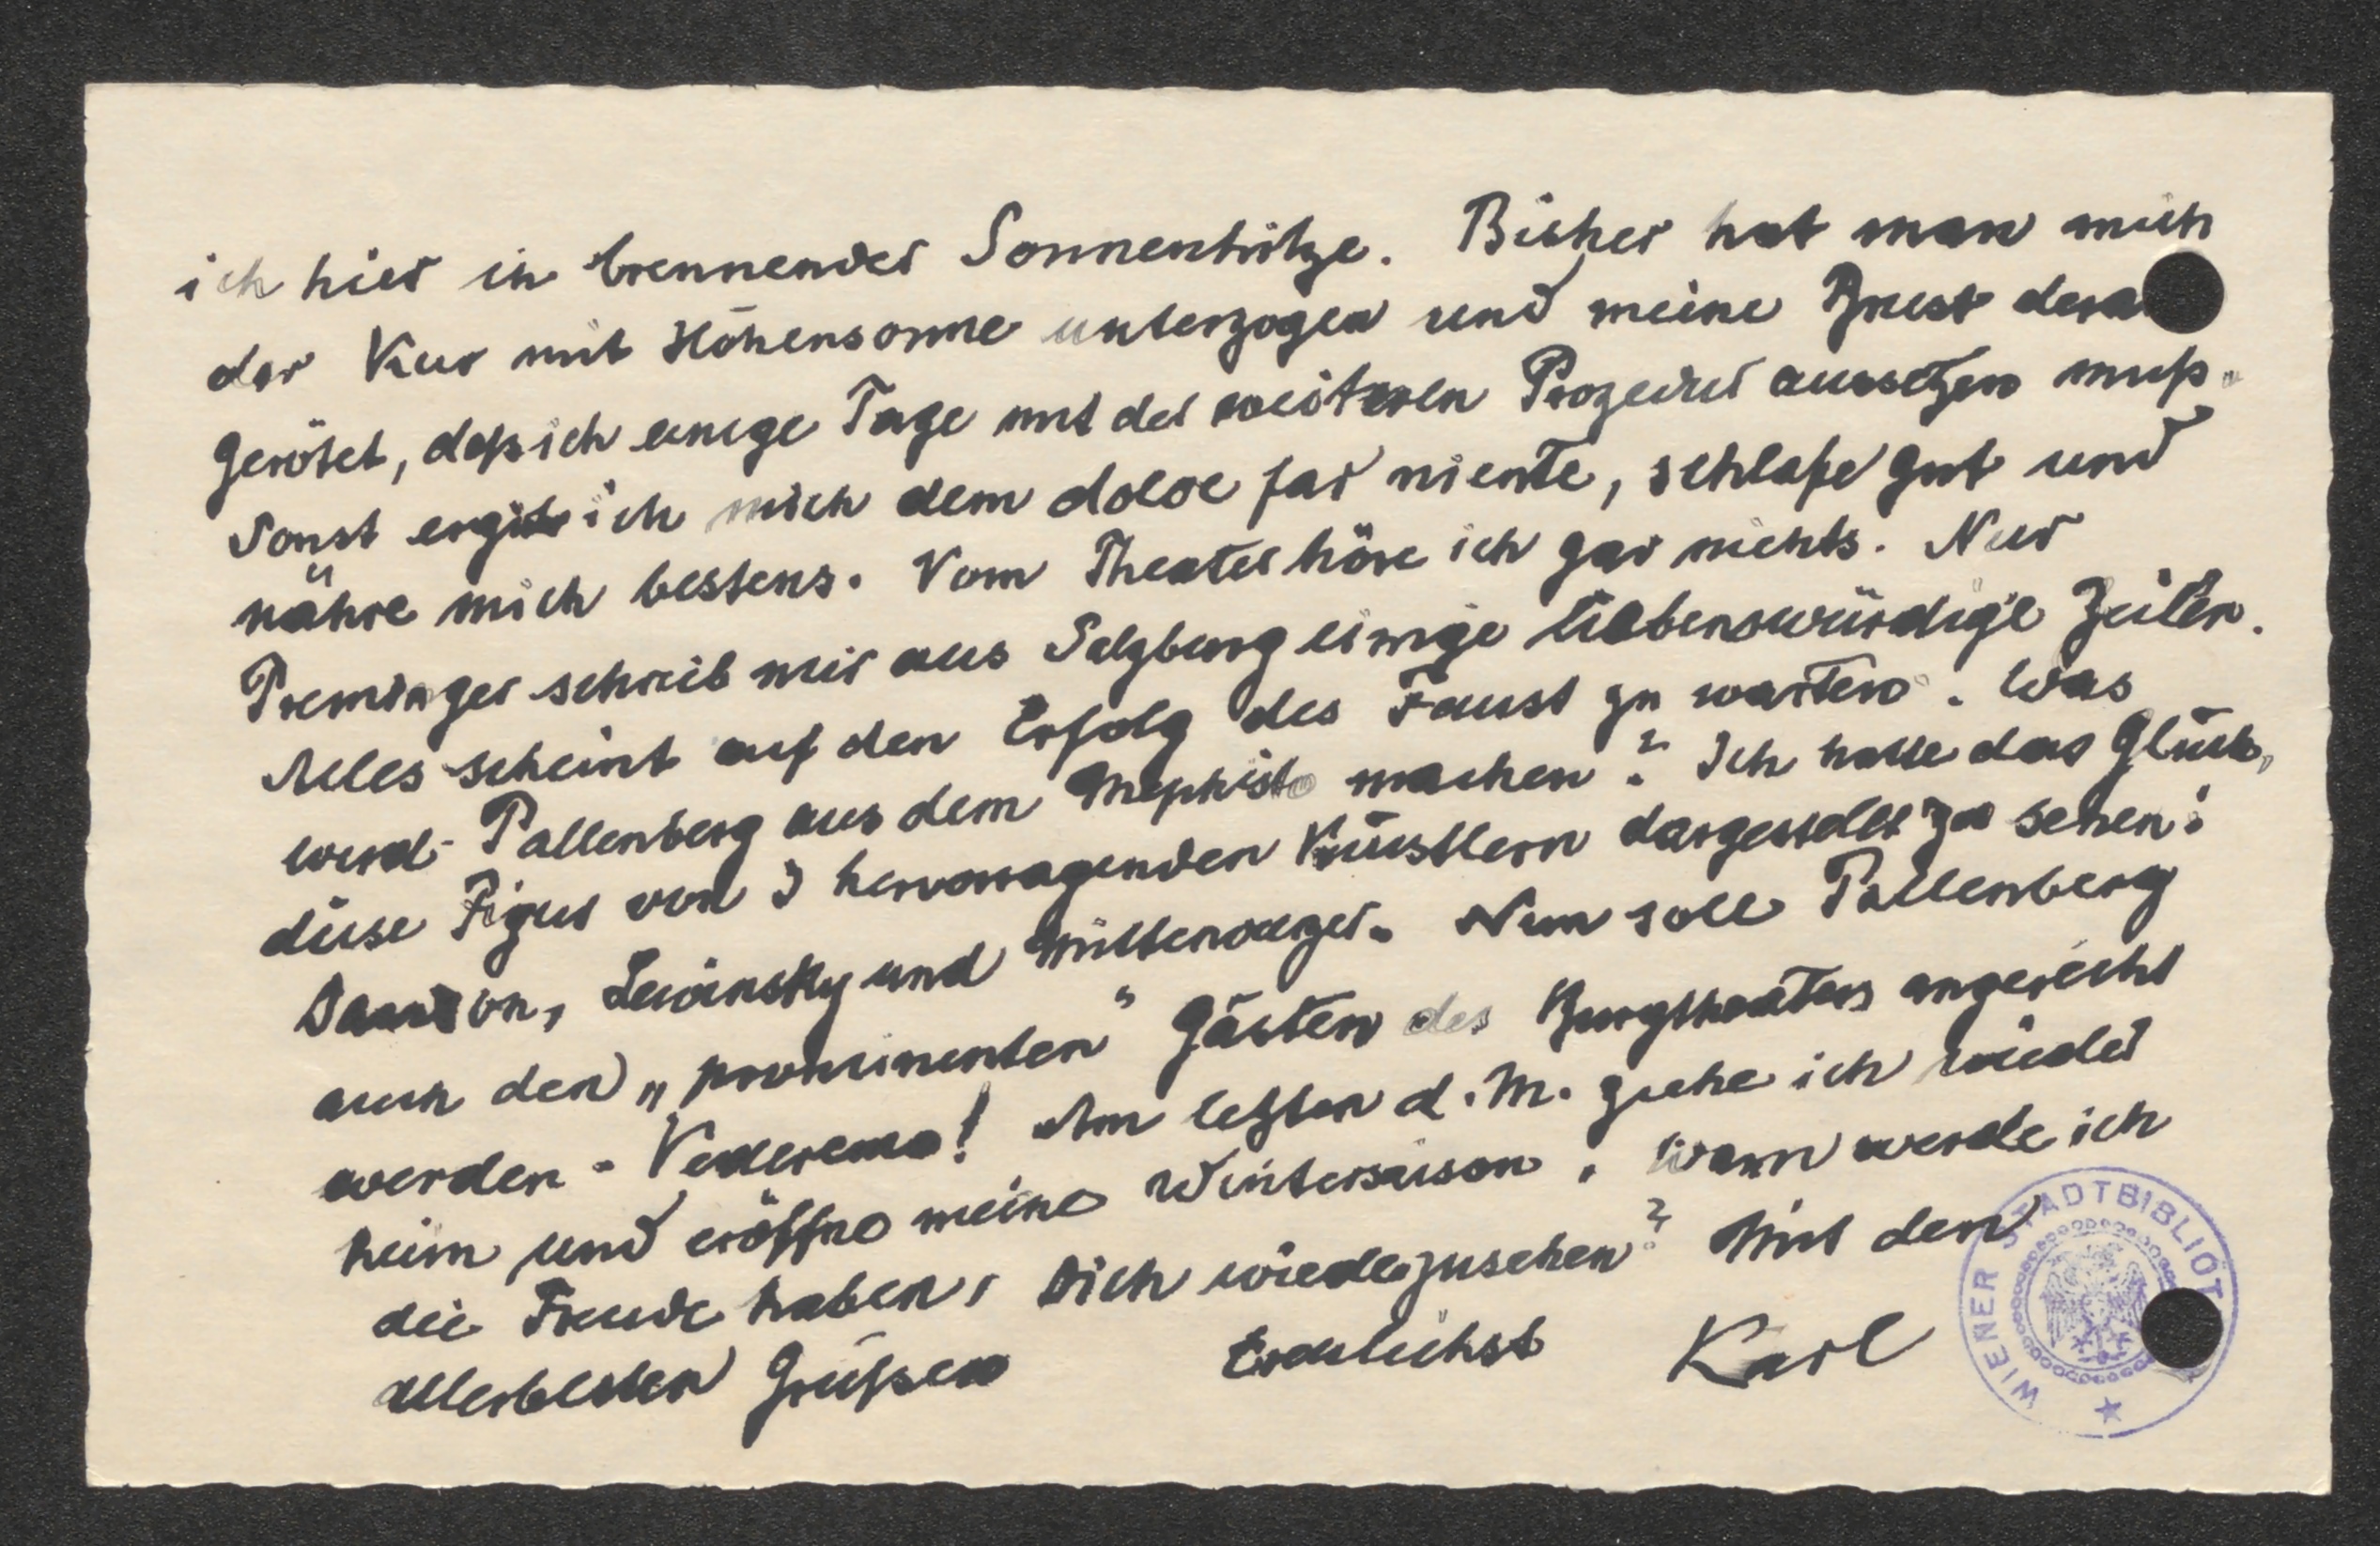 ich hier in brennender Sonnenhitze. Bisher hat man mich
der Kur mit Höhensonne unterzogen und meine Brust dera
gerötet, daß ich einige Tage mit der weiteren Prozedur aussetzen muß.
Sonst ergebe ich mich dem dolce far niente, schlafe gut und
nähre mich bestens. Vom Theater höre ich gar nichts. Nur
Preminger schrieb mir aus Salzburg einige liebenswürdige Zeilen.
Alles scheint auf den Erfolg des Faust zu warten. Was
wird Pallenberg aus dem Mephisto machen? Ich hatte das Glück,
diese Figur von 3 hervorragenden Künstlern dargestellt zu sehen:
Dawison, Lewinsky und Mitterwurzer. Nun soll Pallenberg
auch den „prominenten" Gästen des Burgtheaters angereiht
werden - Vederemo! Am letzten d. M. ziehe ich wieder
heim und eröffne meine Wintersaison. Wann werde ich
die Freude haben, Dich wiederzusehen? Mit den
allerbesten Grüßen treulichst Karl
WIENER STADTBIBLIOT